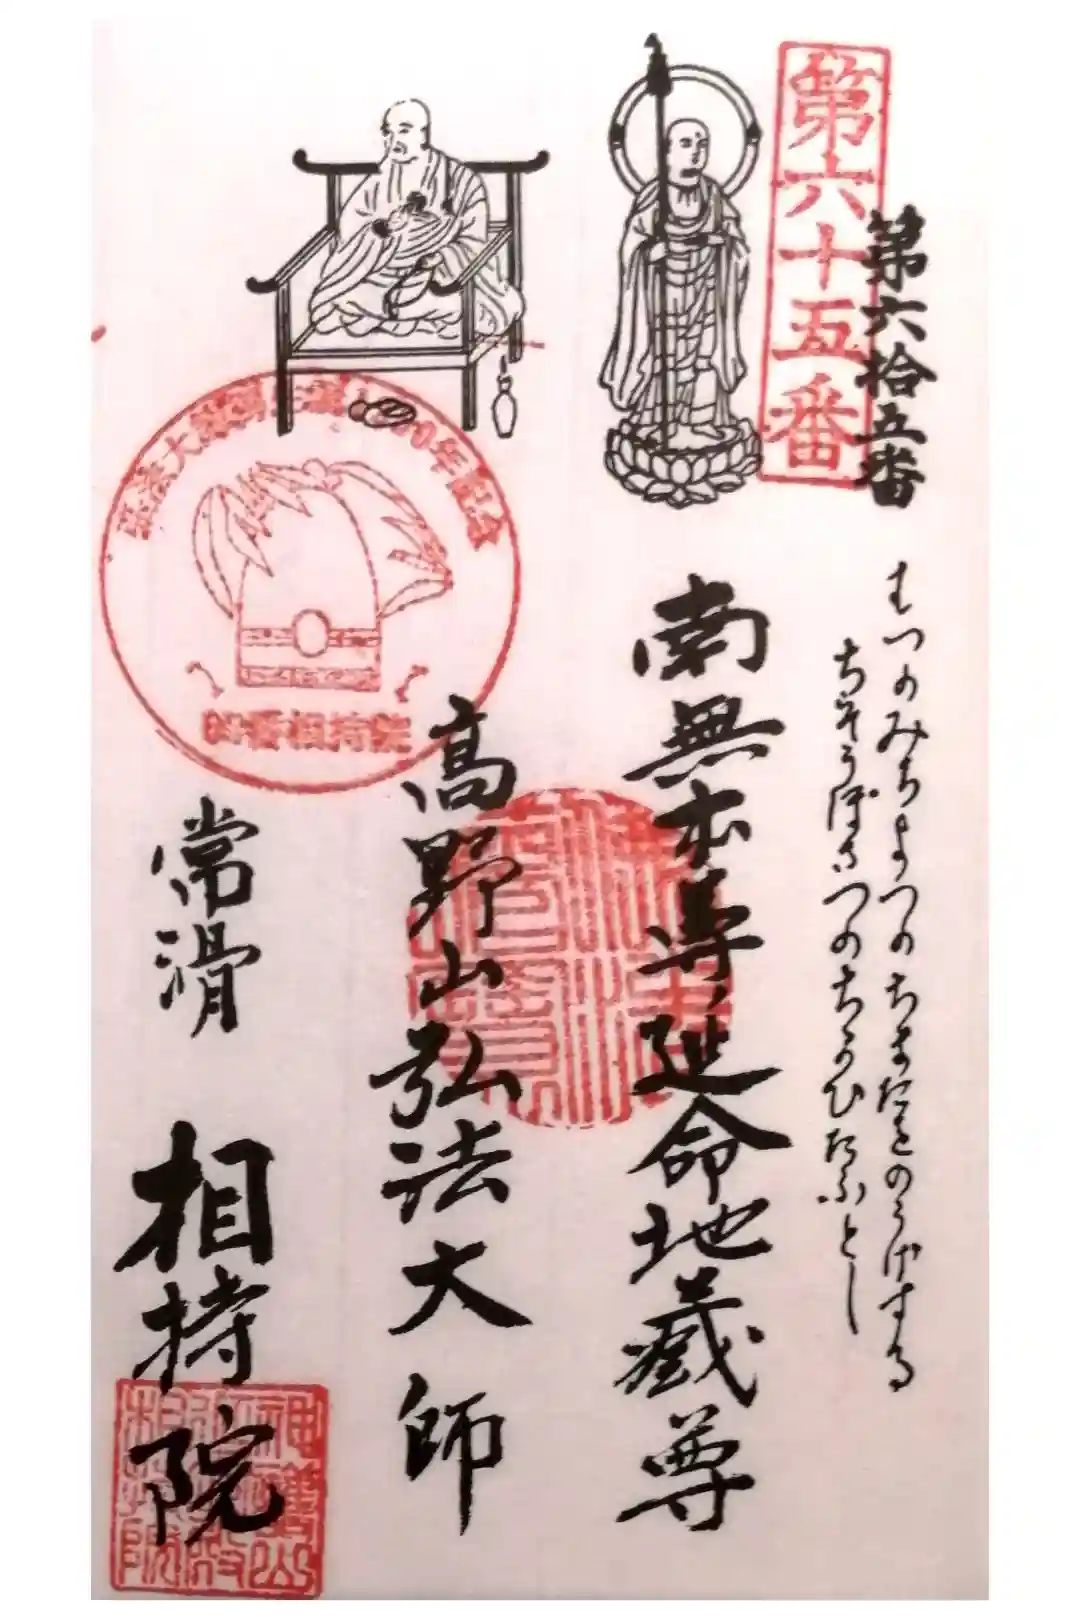 第六十五番
第六拾五番
むつのみちよつのちまたをのうげする
ちそうぼさつのちかひたふとし
南無本尊延命地蔵尊
高野山弘法大師
常滑
相持院
65番相持院